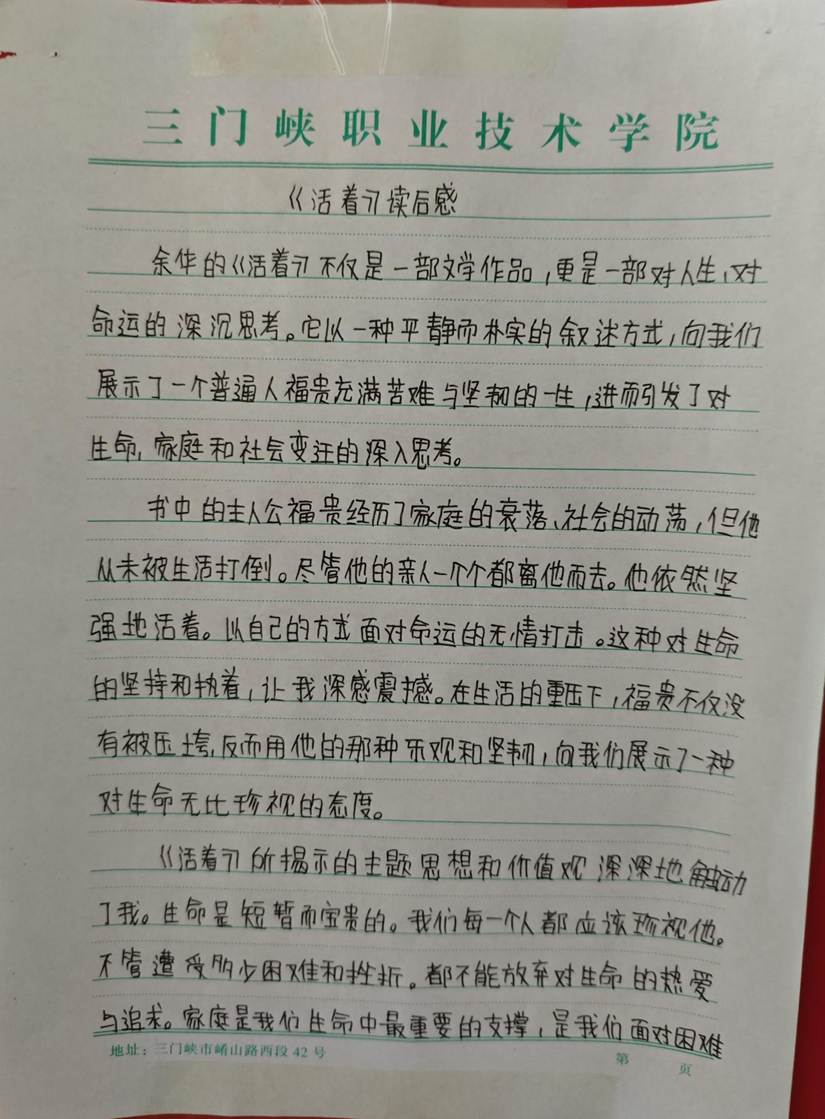 三门峡职业技术学院
《活着》读后感
余华的《活着》不仅是一部文学作品,更是一部对人生、对
命运的深沉思考。它以一种平静而朴实的叙述方式,向我们
展示了一个普通人福贵充满苦难与坚韧的一生,进而引发了对
生命,家庭和社会变迁的深入思考。
书中的主人公福贵经历了家庭的衰落、社会的动荡,但他
从未被生活打倒。尽管他的亲人一个个都离他而去。他依然坚
强地活着。以自己的方式面对命运的无情打击。这种对生命
的坚持和执着,让我深感震撼。在生活的重压下,福贵不仅没
有被压垮,反而用他的那种乐观和坚韧,向我们展示了一种
对生命无比珍视的态度。
《活着》所揭示的主题思想和价值观深深地触动
了我。生命是短暂而宝贵的。我们每一个人都应该珍视他。
不管遭受多少困难和挫折。都不能放弃对生命的热爱
与追求。家庭是我们生命中最重要的支撑,是我们面对困难
地址:三门峡市崤山路西段42号
第 页